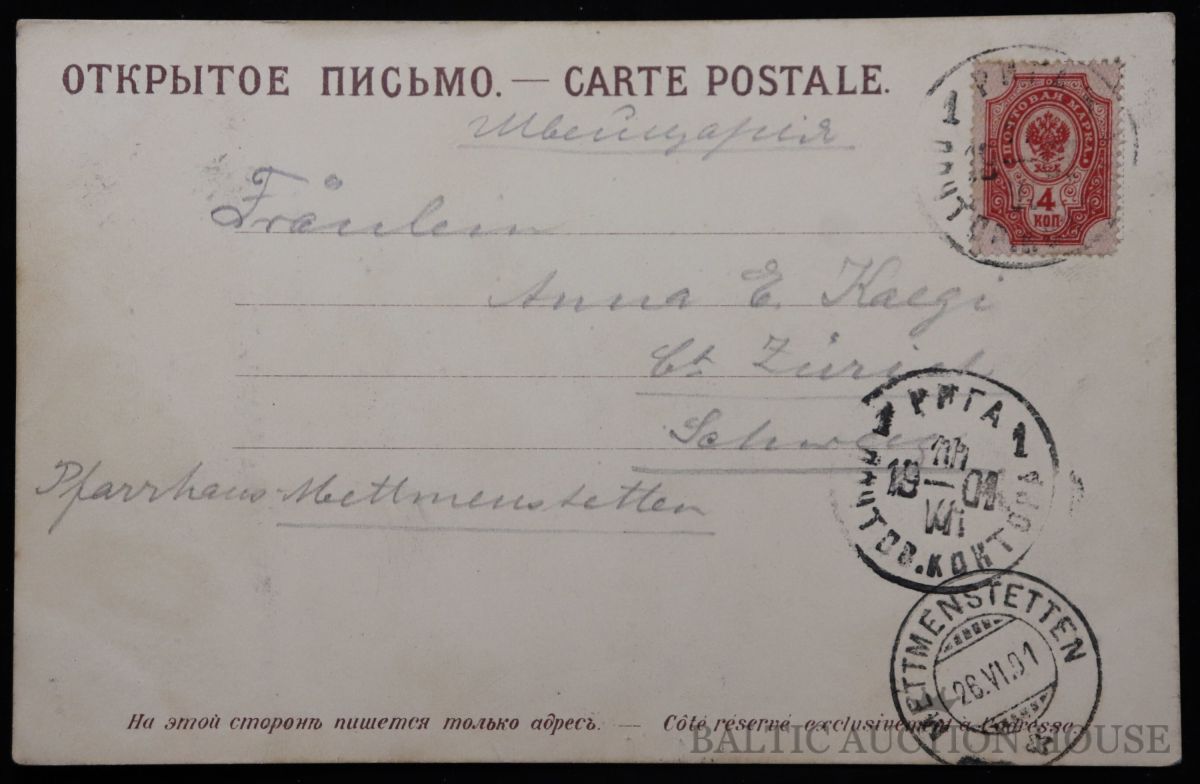 ОТКРЫТОЕ ПИСЬМО. — CARTE POSTALE.
Швейцарія
ПОЧТОВАЯ МАРКА
4
КОП.
Fräulein
Anna E. Kaegi
Ct. Zürich
Schweiz
Pfarrhaus Mettmenstetten
1 РИГА 1
19 01
ПОЧТОВ. КОНТОРА
METTMENSTETTEN
26.VI.01
На этой сторонѣ пишется только адресъ. — Côté réservé exclusivement à l'adresse.
BALTIC AUCTION HOUSE